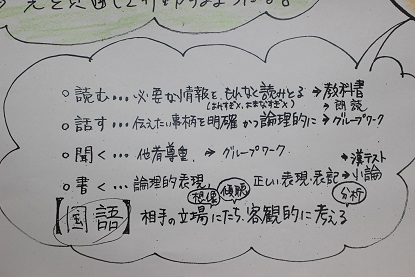 ○読む…必要な情報を、もれなく読みとる→教科書
(はやすぎ×、たまなすぎ×) →朗読
○話す…伝えたい事柄を明確かつ論理的に→グループワーク
○聞く…他者尊重 →グループワーク
→漢テスト
○書く…論理的表現 正しい表現・表記→小論
想像 傾聴 分析
【国語】相手の立場にたち、客観的に考える